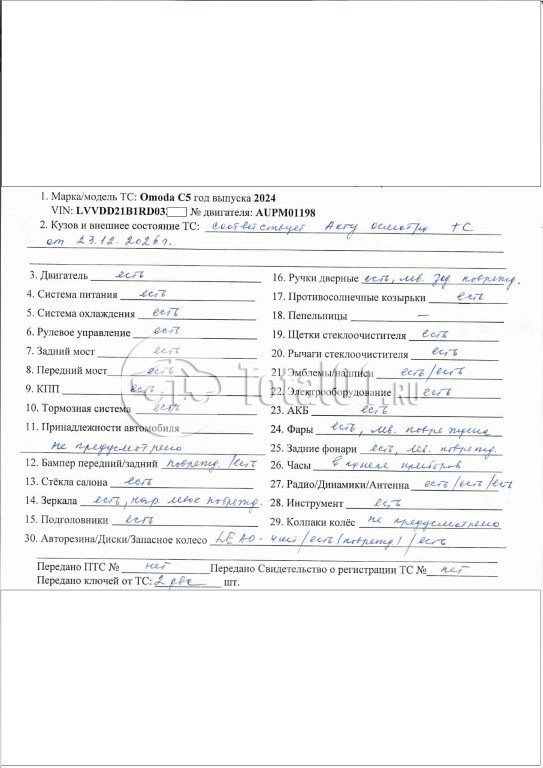 1. Марка/модель ТС: Omoda C5 год выпуска 2024
VIN: LVVDD21B1RD03 № двигателя: AUPM01198
2. Кузов и внешнее состояние ТС: соответствует Акту осмотра ТС
от 23.12.2025г.
3. Двигатель есть
4. Система питания есть
5. Система охлаждения есть
6. Рулевое управление есть
7. Задний мост есть
8. Передний мост есть
9. КПП есть
10. Тормозная система есть
11. Принадлежности автомобиля
не предусмотрено
12. Бампер передний/задний поврежд./есть
13. Стёкла салона есть
14. Зеркала есть, нар. левое поврежд.
15. Подголовники есть
16. Ручки дверные есть, лев. зад поврежд.
17. Противосолнечные козырьки есть
18. Пепельницы —
19. Щетки стеклоочистителя есть
20. Рычаги стеклоочистителя есть
21. Эмблемы/надписи есть/есть
22. Электрооборудование есть
23. АКБ есть
24. Фары есть, лев. повреждена
25. Задние фонари есть, лев. поврежд.
26. Часы в панели приборов
27. Радио/Динамики/Антенна есть/есть/есть
28. Инструмент есть
29. Колпаки колёс не предусмотрено
30. Авторезина/Диски/Запасное колесо LEAO-4шт/есть(поврежд)/есть
Передано ПТС № нет Передано Свидетельство о регистрации ТС № нет
Передано ключей от ТС: 2 два шт.
Total01.RU